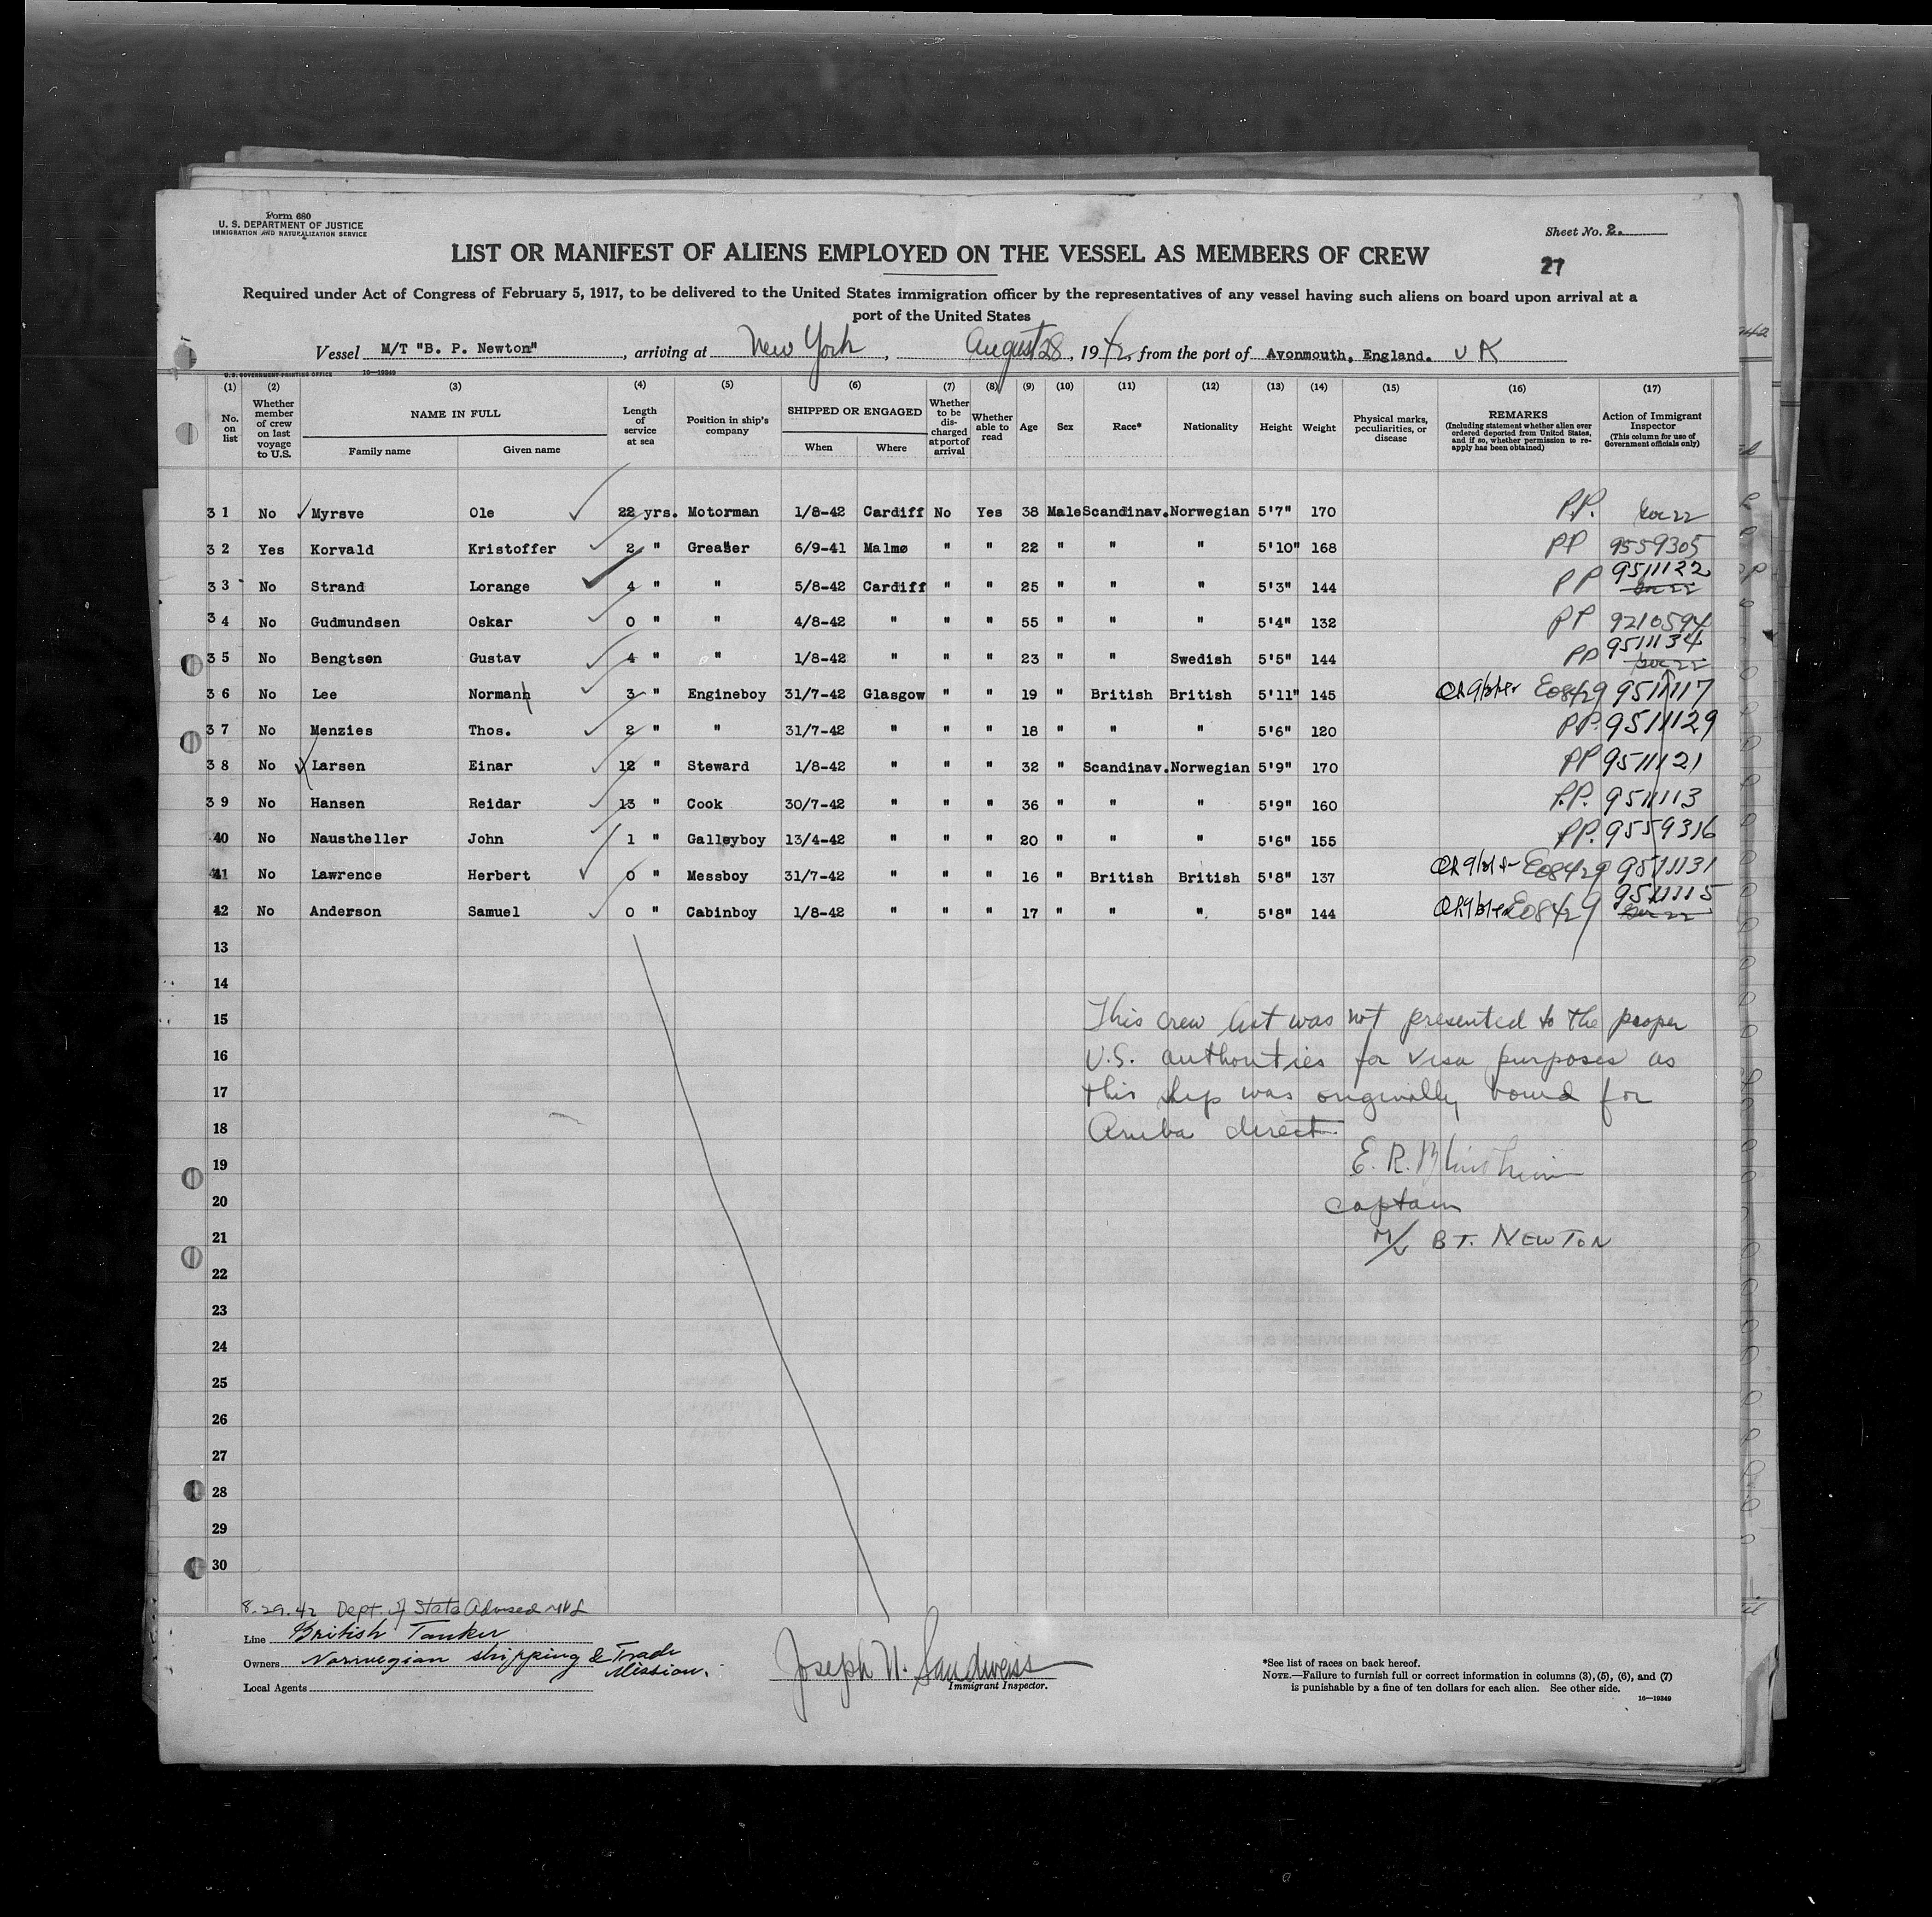 Form 680
U. S. DEPARTMENT OF JUSTICE
IMMIGRATION AND NATURALIZATION SERVICE
Sheet No. 2.
LIST OR MANIFEST OF ALIENS EMPLOYED ON THE VESSEL AS MEMBERS OF CREW
27
Required under Act of Congress of February 5, 1917, to be delivered to the United States immigration officer by the representatives of any vessel having such aliens on board upon arrival at a
port of the United States
Vessel M/T "B. P. Newton", arriving at New York, August 28, 1942, from the port of Avonmouth, England. U K
U.S. GOVERNMENT PRINTING OFFICE 16—19349
(1) (2) (3) (4) (5) (6) (7) (8) (9) (10) (11) (12) (13) (14) (15) (16) (17)
No. on list
Whether member of crew on last voyage to U.S.
NAME IN FULL
Family name Given name
Length of service at sea
Position in ship's company
SHIPPED OR ENGAGED
When Where
Whether to be discharged at port of arrival
Whether able to read
Age Sex Race* Nationality Height Weight
Physical marks, peculiarities, or disease
REMARKS
(Including statement whether alien ever ordered deported from United States, and if so, whether permission to reapply has been obtained)
Action of Immigrant Inspector
(This column for use of Government officials only)
31 No Myrsve Ole 22 yrs. Motorman 1/8-42 Cardiff No Yes 38 Male Scandinav. Norwegian 5'7" 170 P.P.
32 Yes Korvald Kristoffer 2 " Greaser 6/9-41 Malmø " " 22 " " " 5'10" 168 PP 9559305
33 No Strand Lorange 4 " " 5/8-42 Cardiff " " 25 " " " 5'3" 144 PP 9511122
34 No Gudmundsen Oskar 0 " " 4/8-42 " " " 55 " " " 5'4" 132 PP 9210594
35 No Bengtsen Gustav 4 " " 1/8-42 " " " 23 " " Swedish 5'5" 144 PP 9511134
36 No Lee Normann 3 " Engineboy 31/7-42 Glasgow " " 19 " British British 5'11" 145 E08429 9511117
37 No Menzies Thos. 2 " " 31/7-42 " " " 18 " " " 5'6" 120 PP. 9511129
38 No Larsen Einar 12 " Steward 1/8-42 " " " 32 " Scandinav. Norwegian 5'9" 170 PP 9511121
39 No Hansen Reidar 13 " Cook 30/7-42 " " " 36 " " " 5'9" 160 P.P. 9511113
40 No Naustheller John 1 " Galleyboy 13/4-42 " " " 20 " " " 5'6" 155 P.P. 9559316
41 No Lawrence Herbert 0 " Messboy 31/7-42 " " " 16 " British British 5'8" 137 E08429 9511131
42 No Anderson Samuel 0 " Cabinboy 1/8-42 " " " 17 " " " 5'8" 144 E08429 9511115
13
14
15
This crew list was not presented to the proper
16
U.S. authorities for visa purposes as
17
this ship was originally bound for
18
Aruba direct.
19
E. R.
20
Captain
21
M/V BT. NEWTON
22
23
24
25
26
27
28
29
30
8.29.42 Dept. of State Advised
Line British Tanker
Owners Norwegian Shipping & Trade Mission.
Local Agents
Joseph W. Sandweiss
Immigrant Inspector.
*See list of races on back hereof.
NOTE.—Failure to furnish full or correct information in columns (3), (5), (6), and (7)
is punishable by a fine of ten dollars for each alien. See other side.
16—19349